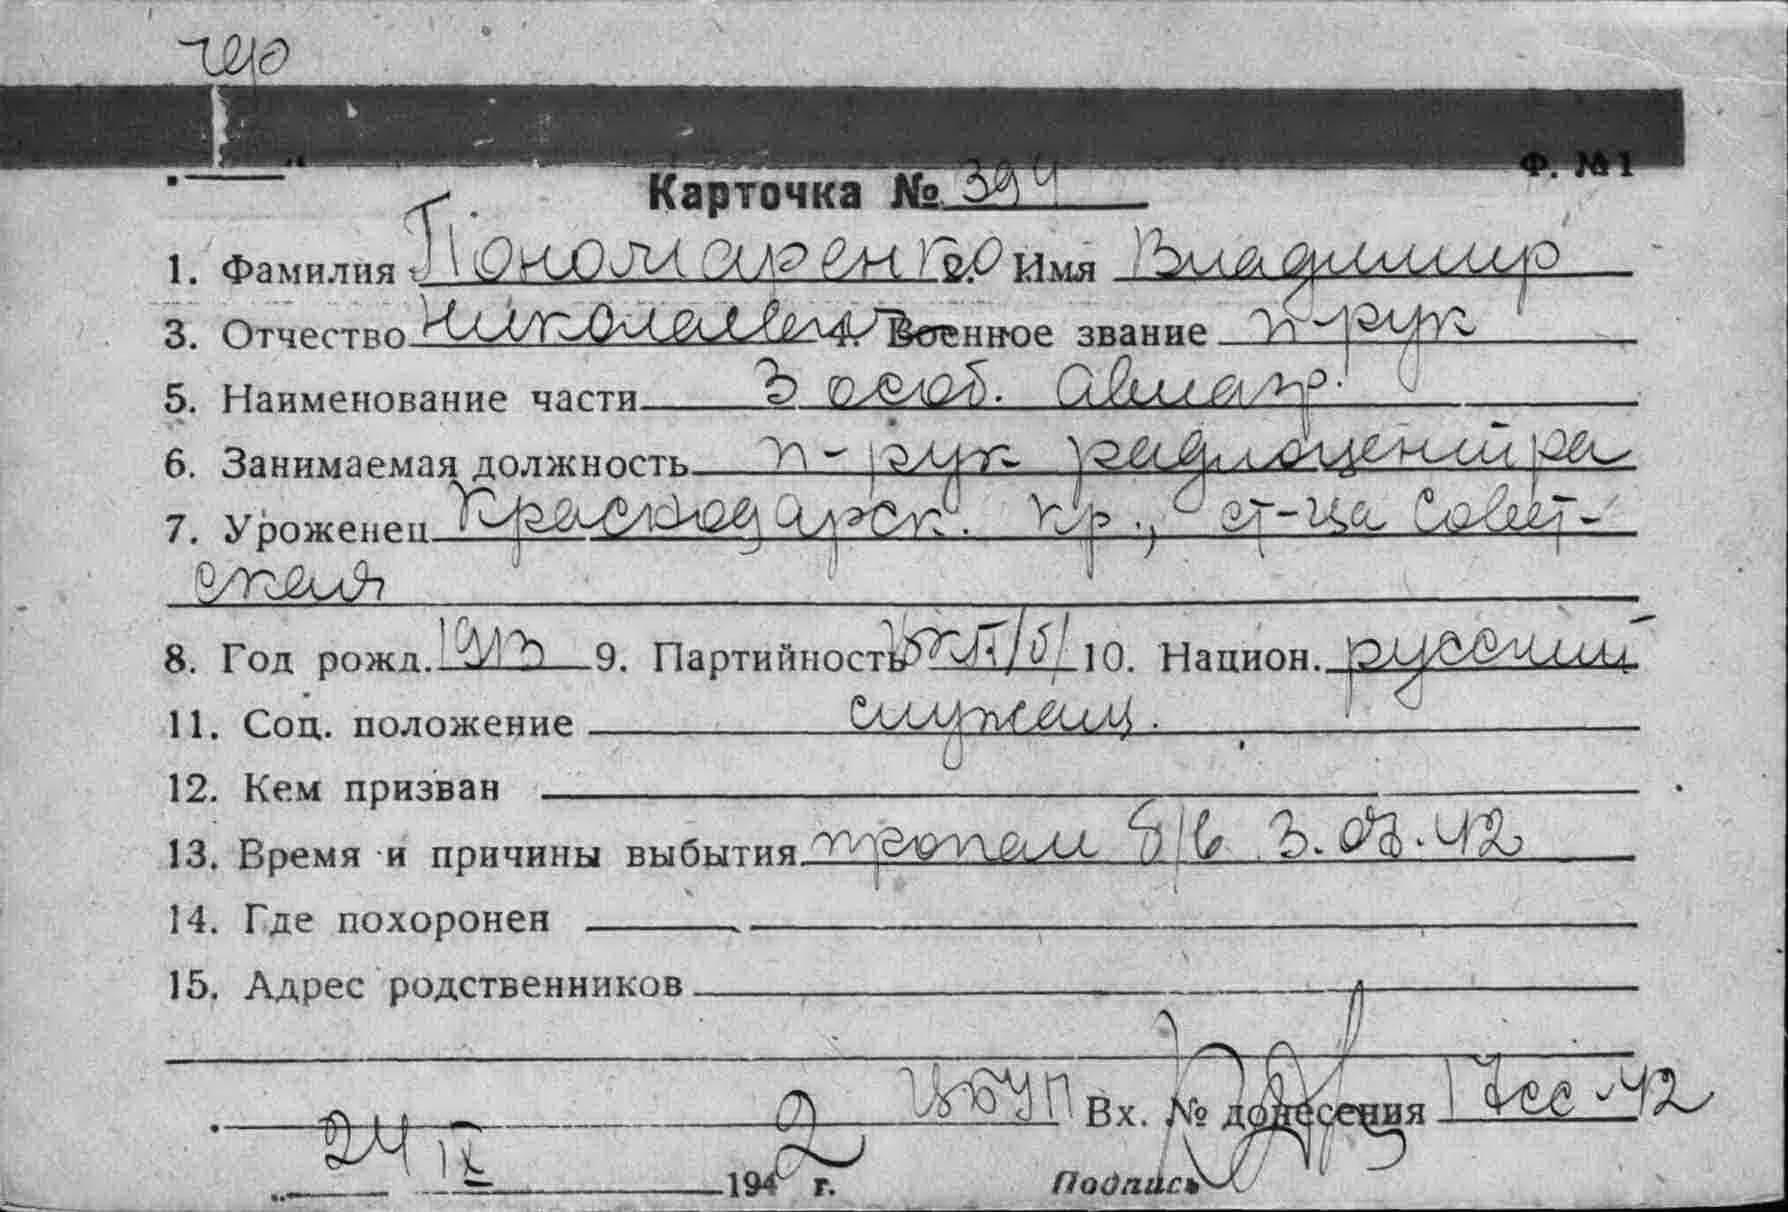 Ф. №1
Карточка № 394
1. Фамилия Пономаренко 2. Имя Владимир
3. Отчество Николаевич 4. Военное звание п-рук
5. Наименование части 3 особ. авиагр.
6. Занимаемая должность п-рук радиоцентра
7. Уроженец Краснодарск. кр., ст-ца Совет-
ская
8. Год рожд. 1913 9. Партийность ВКП/б/ 10. Национ. русский
11. Соц. положение служащ.
12. Кем призван
13. Время и причины выбытия пропал б/в 3.07.42
14. Где похоронен
15. Адрес родственников
ЦБУП Вх. № донесения 17сс-42
24 IX 1942 г. Подпись